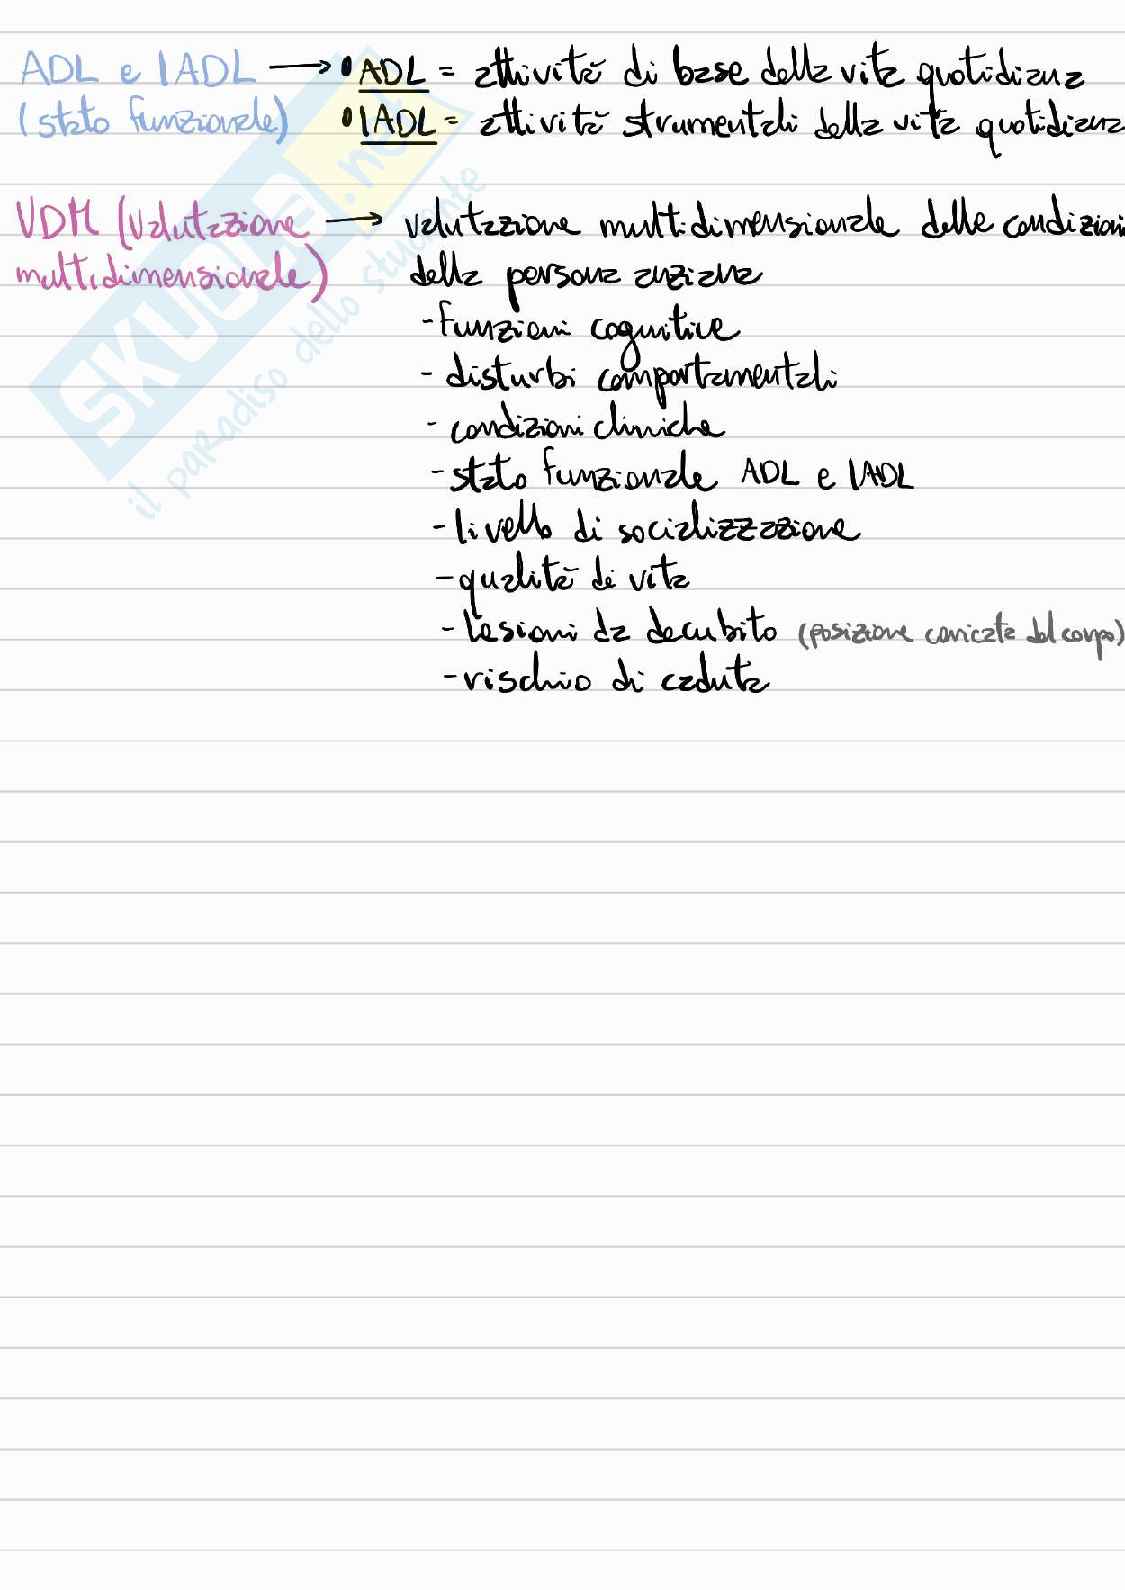 ADL e IADL → • ADL = attività di base della vita quotidiana
(stato funzionale) • IADL = attività strumentali della vita quotidiana
VDM (valutazione → valutazione multidimensionale delle condizioni
multidimensionale) della persona anziana
- funzioni cognitive
- disturbi comportamentali
- condizioni cliniche
- stato funzionale ADL e IADL
- livello di socializzazione
- qualità di vita
- lesioni da decubito (posizione coricata del corpo)
- rischio di caduta
SKUOLA.net
il paradiso dello studente